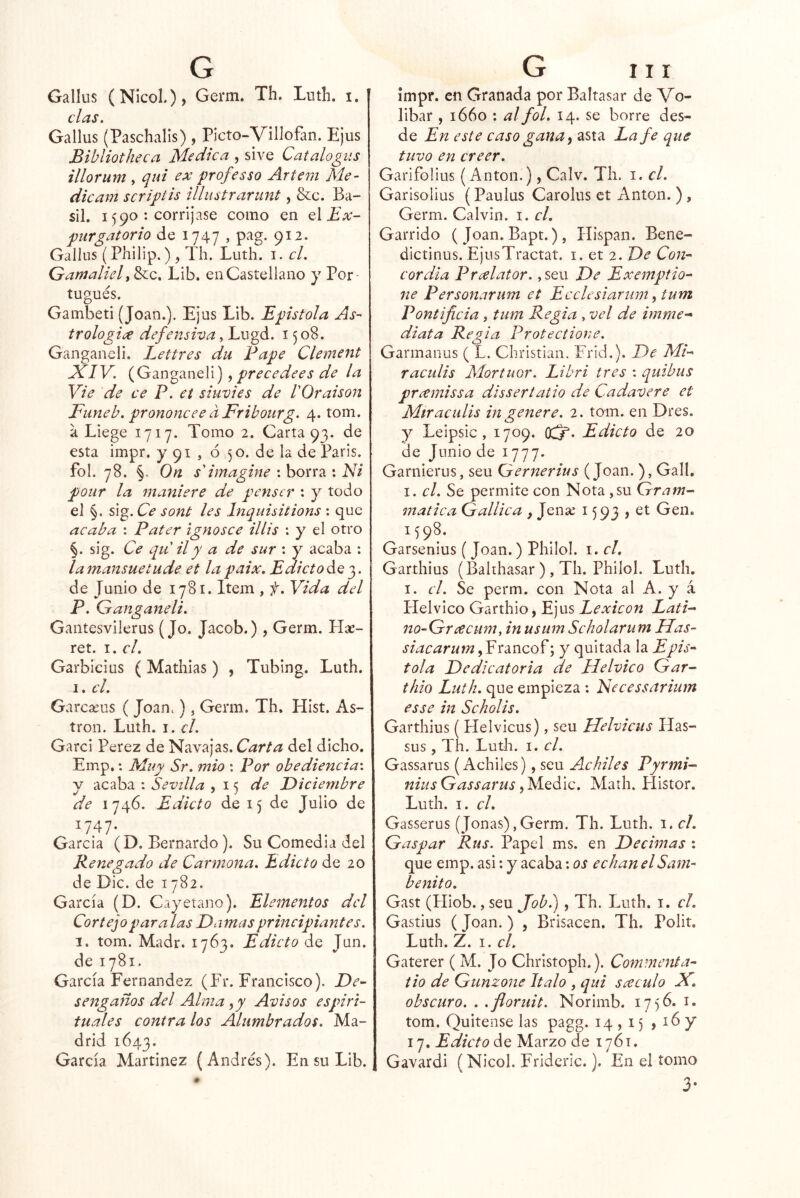 G
Gallus (Nicol.), Germ. Th. Luth. 1.
clas.
Gallus (Paschalis), Picto-Villofan. Ejus
Bibliotheca Medica, sive Catalogus
illorum, qui ex professo Artem Me-
dicam scriptis illustrarunt, &c. Ba-
sil. 1590: corrijase como en el Ex-
purgatorio de 1747, pag. 912.
Gallus (Philip.), Th. Luth. 1. cl.
Gamaliel, &c. Lib. en Castellano y Por-
tugués.
Gambeti (Joan.). Ejus Lib. Epistola As-
trologiæ defensiva, Lugd. 1508.
Ganganeli. Lettres du Pape Clement
XIV. (Ganganeli), precedees de la
Vie de ce P. et siuvies de l'Oraison
Funeb. prononcee à Fribourg. 4. tom.
à Liege 1717. Tomo 2. Carta 93. de
esta impr. y 91, ó 50. de la de Paris.
fol. 78. §. On s'imagine : borra : Ni
pour la maniere de penser : y todo
el §. sig. Ce sont les Inquisitions : que
acaba : Pater ignosce illis : y el otro
§. sig. Ce qu' il y a de sur : y acaba :
la mansuetude et la paix. Edicto de 3.
de Junio de 1781. Item, ỳ. Vida del
P. Ganganeli.
Gantesvilerus (Jo. Jacob.), Germ. Hæ-
ret. 1. cl.
Garbicius (Mathias), Tubing. Luth.
1. cl.
Garcæus (Joan.), Germ. Th. Hist. As-
tron. Luth. 1. cl.
Garci Perez de Navajas. Carta del dicho.
Emp.: Muy Sr. mio : Por obediencia:
y acaba : Sevilla, 15 de Diciembre
de 1746. Edicto de 15 de Julio de
1747.
Garcia (D. Bernardo). Su Comedia del
Renegado de Carmona. Edicto de 20
de Dic. de 1782.
García (D. Cayetano). Elementos del
Cortejo para las Damas principiantes.
1. tom. Madr. 1763. Edicto de Jun.
de 1781.
García Fernandez (Fr. Francisco). De-
sengaños del Alma, y Avisos espiri-
tuales contra los Alumbrados. Ma-
drid 1643.
García Martinez (Andrés). En su Lib.
G 111
impr. en Granada por Baltasar de Vo-
libar, 1660 : al fol. 14. se borre des-
de En este caso gana, asta La fe que
tuvo en creer.
Garifolius (Anton.), Calv. Th. 1. cl.
Garisolius (Paulus Carolus et Anton.),
Germ. Calvin. 1. cl.
Garrido (Joan. Bapt.), Hispan. Bene-
dictinus. Ejus Tractat. 1. et 2. De Con-
cordia Prælator., seu De Exemptio-
ne Personarum et Ecclesiarum, tum
Pontificia, tum Regia, vel de imme-
diata Regia Protectione.
Garmanus (L. Christian. Frid.). De Mi-
raculis Mortuor. Libri tres : quibus
præmissa dissertatio de Cadavere et
Miraculis in genere. 2. tom. en Dres.
y Leipsic, 1709. ☞. Edicto de 20
de Junio de 1777.
Garnierus, seu Gernerius (Joan.), Gall.
1. cl. Se permite con Nota, su Gram-
matica Gallica, Jenæ 1593, et Gen.
1598.
Garsenius (Joan.) Philol. 1. cl.
Garthius (Balthasar), Th. Philol. Luth.
1. cl. Se perm. con Nota al A. y á
Helvico Garthio, Ejus Lexicon Lati-
no-Græcum, in usum Scholarum Has-
siacarum, Francof; y quitada la Epis-
tola Dedicatoria de Helvico Gar-
thio Luth. que empieza : Necessarium
esse in Scholis.
Garthius (Helvicus), seu Helvicus Has-
sus, Th. Luth. 1. cl.
Gassarus (Achiles), seu Achiles Pyrmi-
nius Gassarus, Medic. Math. Histor.
Luth. 1. cl.
Gasserus (Jonas), Germ. Th. Luth. 1. cl.
Gaspar Rus. Papel ms. en Decimas :
que emp. asi: y acaba: os echan el Sam-
benito.
Gast (Hiob., seu Job.), Th. Luth. 1. cl.
Gastius (Joan.), Brisacen. Th. Polit.
Luth. Z. 1. cl.
Gaterer (M. Jo Christoph.). Commenta-
tio de Gunzone Italo, qui sæculo X.
obscuro. . . floruit. Norimb. 1756. 1.
tom. Quitense las pagg. 14, 15, 16 y
17. Edicto de Marzo de 1761.
Gavardi (Nicol. Frideric.). En el tomo
3.